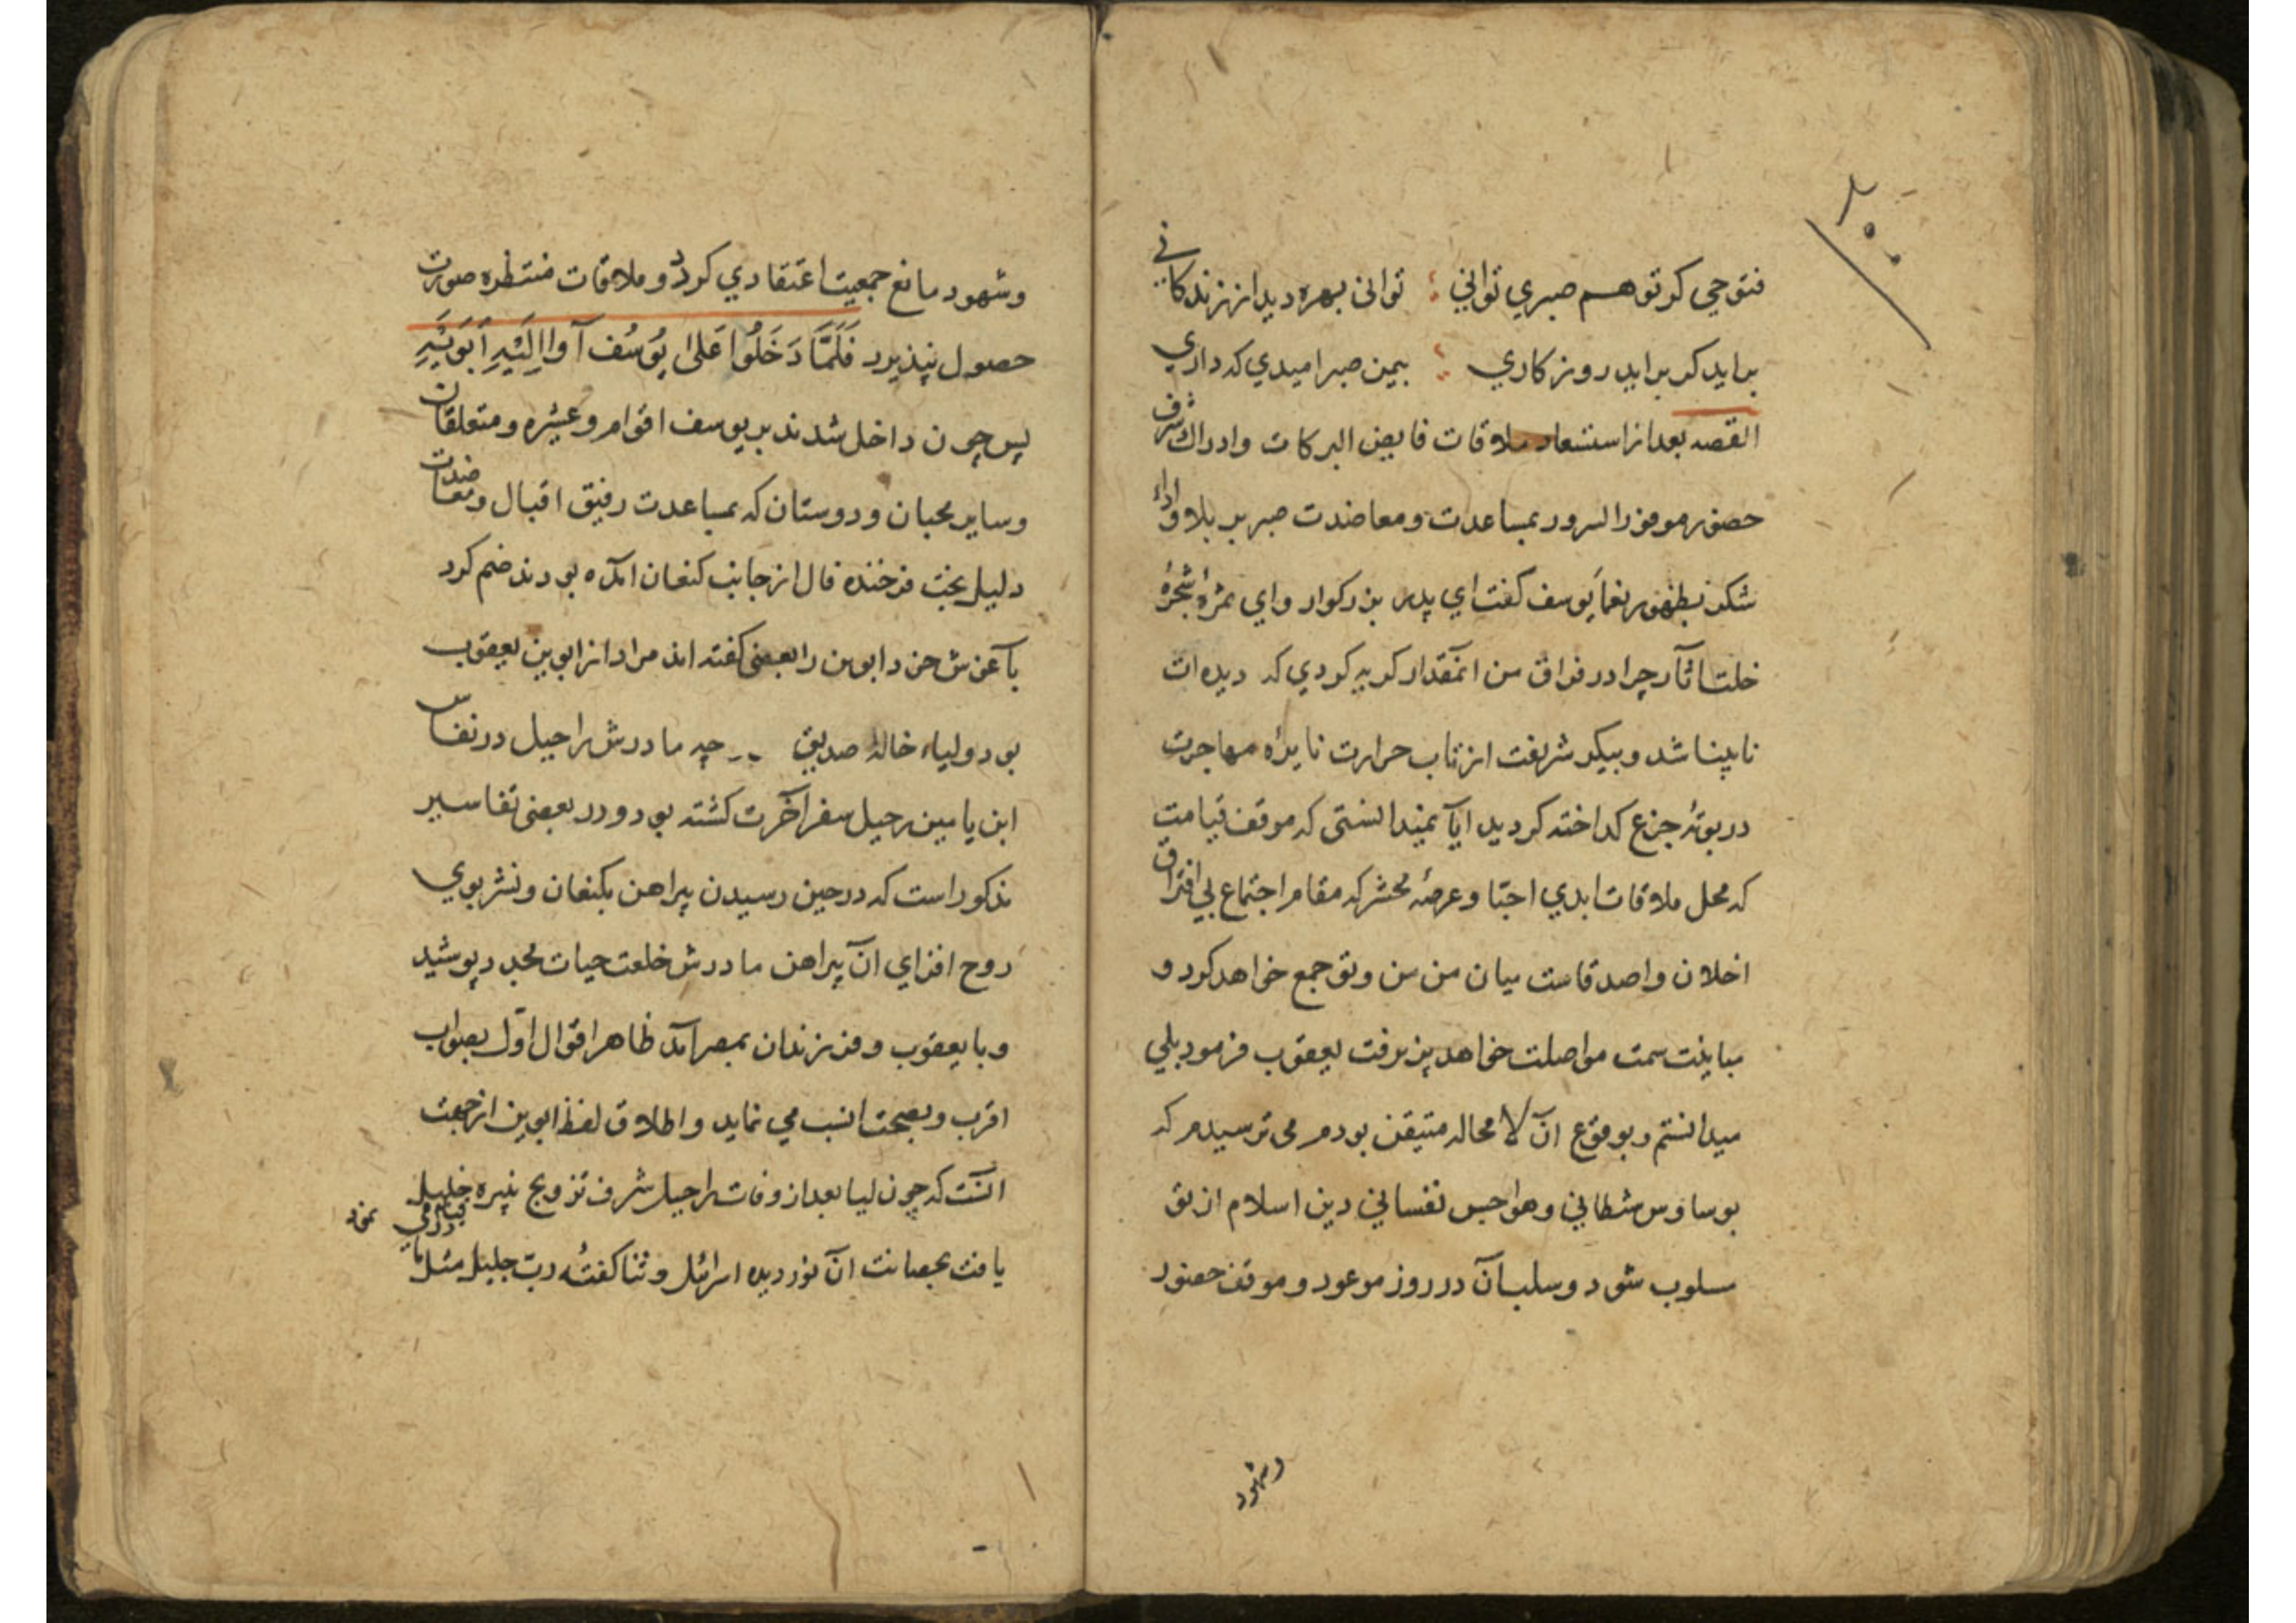 فتوحی کر تو هم صبري تواني توانی بهره دید از زندکانی
براید کر براید روزکاري بیمن صبر امیدي که داري
القصه بعد از استسعاد ملاقات فایض البرکات وادراك شرف
حضور موفور السرور بمساعدت ومعاضدت صبر بر بلا واداء
شکر نعما یوسف کفت اي پدر بزرکوار واي ثمرهٔ شجرهٔ
خلت اثار چرا در فراق من انمقدار کریه کردي که دیده ات
نابینا شد وپیکر شریفت از تاب حرارت نایرهٔ مهاجرت
در بوتهٔ جزع کداخته کردید ایا نمیدانستی که موقف قیامت
که محل ملاقات ابدي احبّا وعرصهٔ محشر که مقام اجتماع بي افتراق
اخلان واصدقاست میان من وتو جمع خواهد کرد و
مباینت سمت مواصلت خواهد پذیرفت یعقوب فرمود بلي
میدانستم وبوقوع آن لا محاله متیقن بودم می ترسیدم که
بوساوس شطاني وهواجس نفساني دین اسلام از تو
مسلوب شود وسلب آن در روز موعود وموقف حضور
وشهود
وشهود مانع جمعیت اعتقادي کردد وملاقات منتظره صورت
حصول نپذیرد فَلَمَّا دَخَلُوا عَلیٰ یُوسُفَ آوا اِلَیْهِ اَبَوَیْهِ
پس چون داخل شدند بر یوسف اقوام وعشیره ومتعلقان
وسایر محبان ودوستان که بمساعدت رفیق اقبال ومعاضدت
دلیل بخت فرخنده فال از جانب کنعان آمده بودند ضم کرد
بآغوش خود ابوین را بعضی کفته اند مراد از ابوین یعقوب
بود ولیاء خالهٔ صدیق چه مادرش راحیل در نفاس
ابن یامین رحیل سفر آخرت کشته بود ودر بعضی تفاسیر
مذکور است که در حین رسیدن پیراهن بکنعان ونشر بوي
روح افزاي آن پیراهن مادرش خلعت حیات مجدد پوشید
وبا یعقوب وفرزندان بمصر آمد ظاهرا قوال اوّل بصواب
اقرب وبصحت انسب مي نماید واطلاق لفظ ابوین از جهت
آنست که چون لیا بعد از وفات راحیل شرف تزویج نبیره خلیل
یافت بحضانت آن نور دیده اسرائل وثنا کفتهٔ ربّ جلیل مثل ما در قیام مي نمود